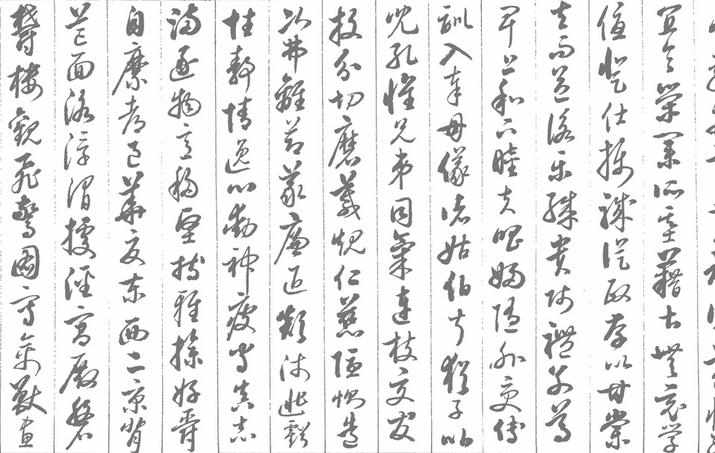 宜令榮業所基藉甚無竟學
優登仕攝職從政存以甘棠
去而益詠樂殊貴賤禮別尊
卑上和下睦夫唱婦隨外受傅
訓入奉母儀諸姑伯叔猶子比
兒孔懷兄弟同氣連枝交友
投分切磨箴規仁慈隱惻造
次弗離節義廉退顛沛匪虧
性靜情逸心動神疲守真志
滿逐物意移堅持雅操好爵
自縻都邑華夏東西二京背
芒面洛浮渭據涇宮殿盤
鬱樓觀飛驚圖寫禽獸畫